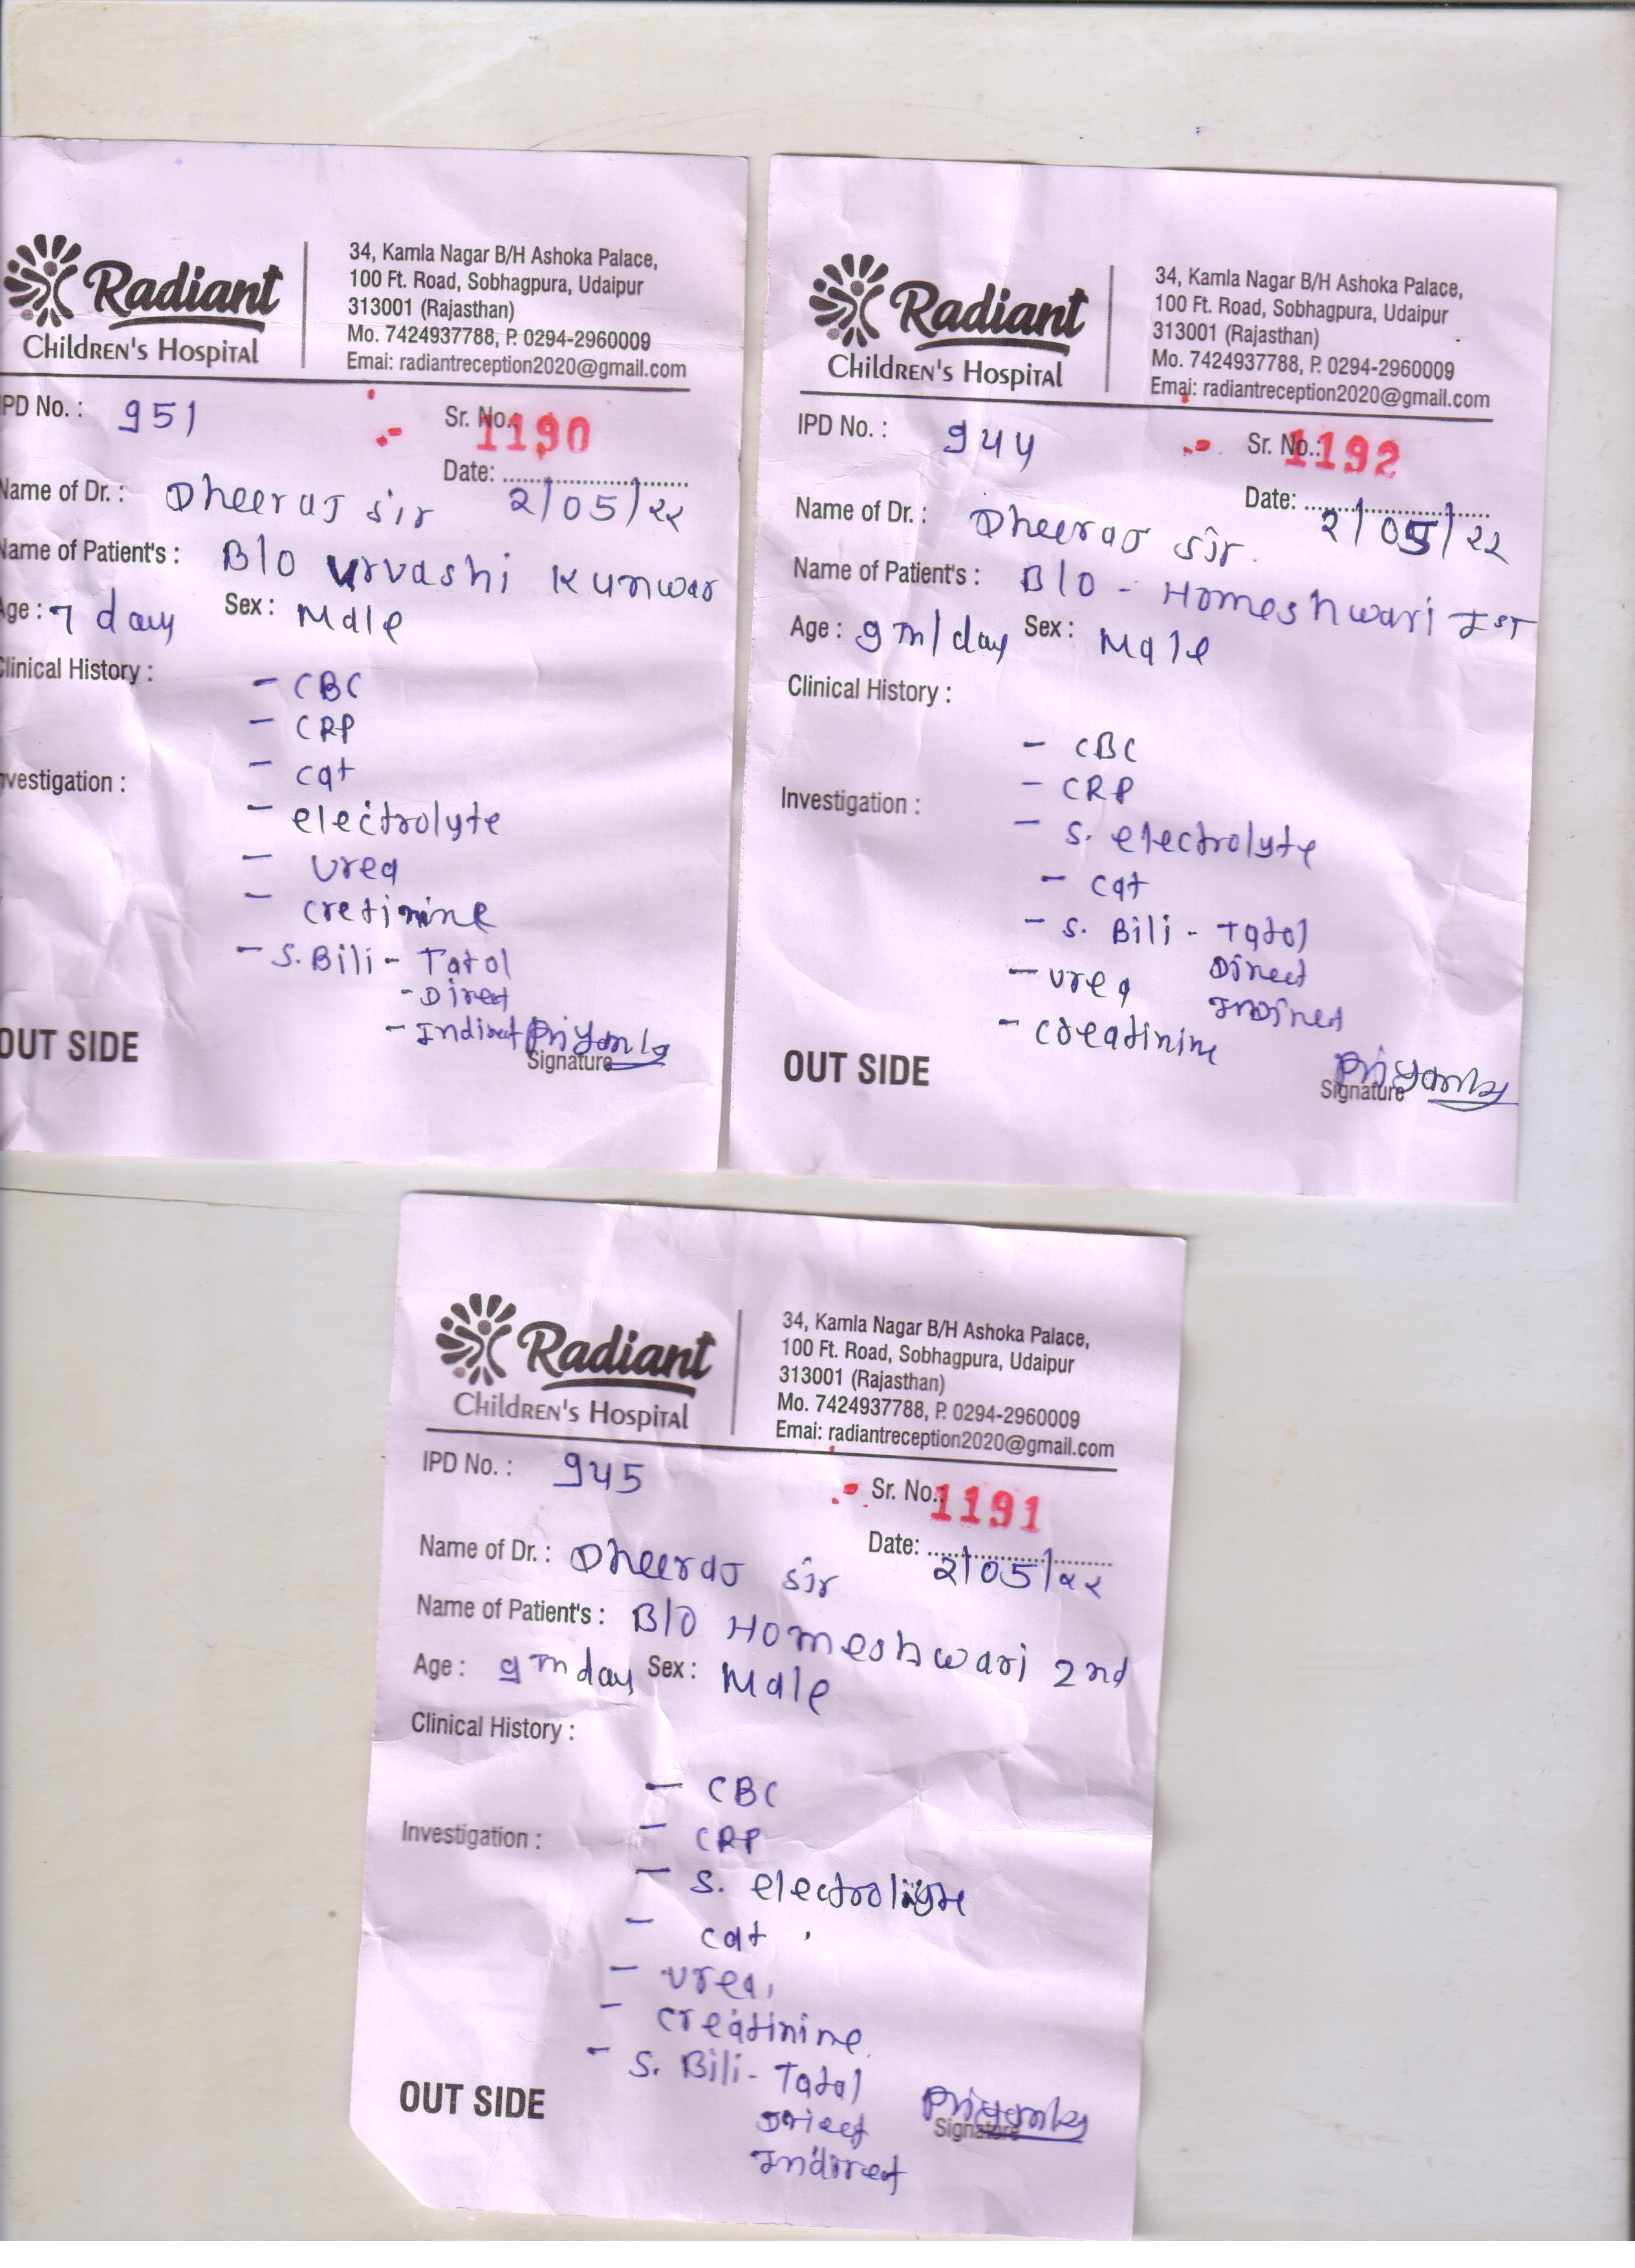 Radiant
Children's Hospital
34, Kamla Nagar B/H Ashoka Palace,
100 Ft. Road, Sobhagpura, Udaipur
313001 (Rajasthan)
Mo. 7424937788, P. 0294-2960009
Emai: radiantreception2020@gmail.com
PD No. : 951
Sr. No.: 1190
Date: 2/05/22
Name of Dr. : Dheeraj sir
Name of Patient's : B/O Urvashi Kunwar
Age : 7 day Sex : Male
Clinical History :
- CBC
- CRP
- cat
Investigation :
- electrolyte
- Urea
- cretinine
- S. Bili - Tatol
- Direct
- Indirect
OUT SIDE
Priyanka
Signature
Radiant
Children's Hospital
34, Kamla Nagar B/H Ashoka Palace,
100 Ft. Road, Sobhagpura, Udaipur
313001 (Rajasthan)
Mo. 7424937788, P. 0294-2960009
Emai: radiantreception2020@gmail.com
IPD No. : 944
Sr. No.: 1192
Date: 2/05/22
Name of Dr. : Dheeraj sir
Name of Patient's : B/O - Homeshwari Ist
Age : 9 th/day Sex : Male
Clinical History :
- CBC
Investigation :
- CRP
- S. electrolyte
- cat
- S. Bili - Tatol
Direct
Indirect
- Urea
- creatinine
OUT SIDE
Priyanka
Signature
Radiant
Children's Hospital
34, Kamla Nagar B/H Ashoka Palace,
100 Ft. Road, Sobhagpura, Udaipur
313001 (Rajasthan)
Mo. 7424937788, P. 0294-2960009
Emai: radiantreception2020@gmail.com
IPD No. : 945
Sr. No.: 1191
Date: 2/05/22
Name of Dr. : Dheeraj sir
Name of Patient's : B/O Homeshwari 2nd
Age : 9 th day Sex : Male
Clinical History :
- CBC
Investigation :
- CRP
- S. electrolyte
- cat
- Urea
- creatinine
- S. Bili - Tatal
Direct
Indirect
OUT SIDE
Priyanka
Signature